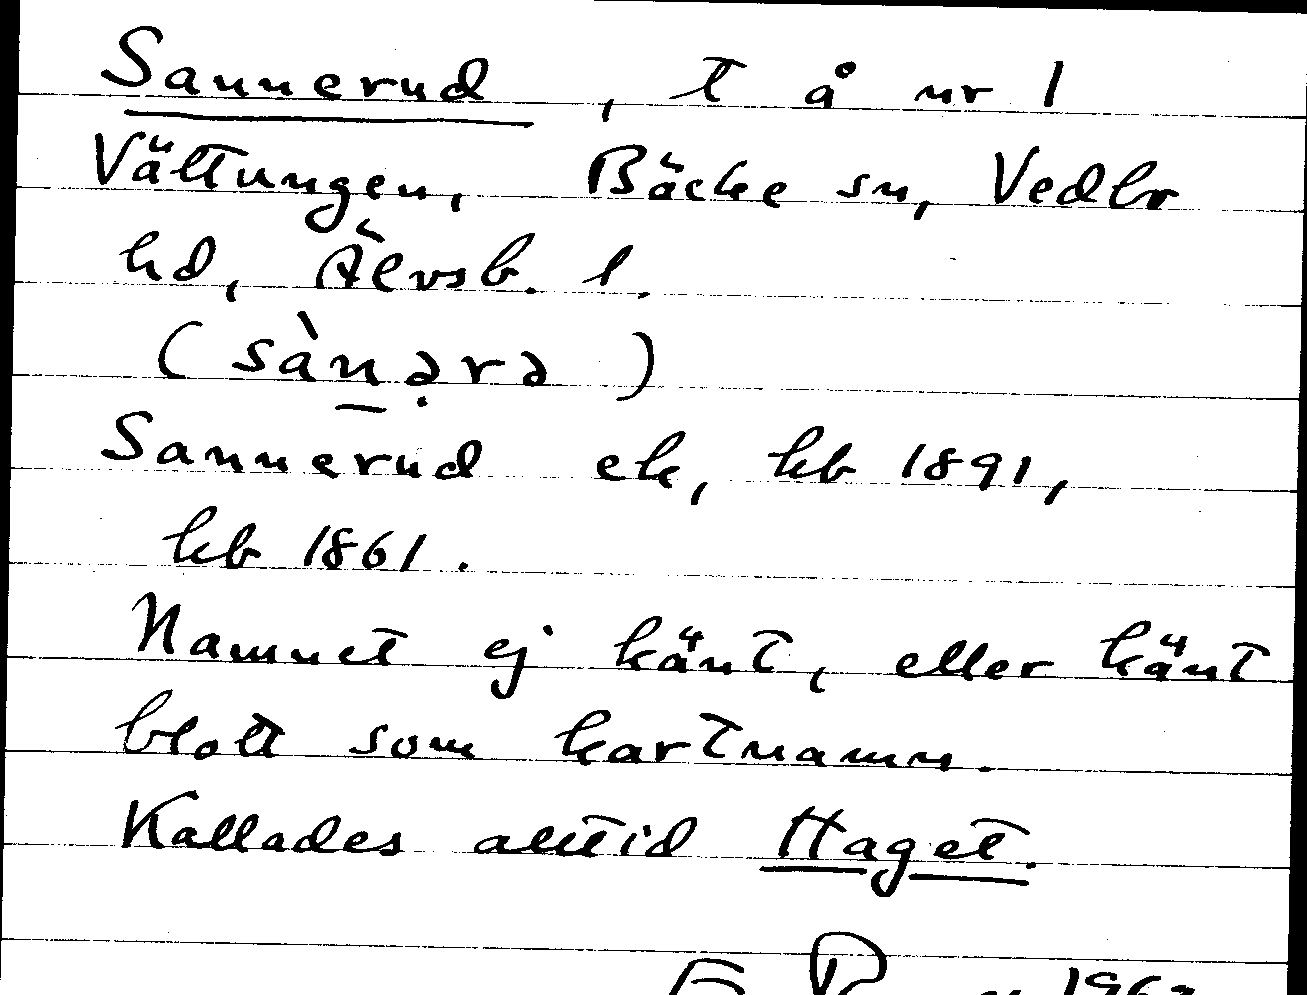 Sannerud, t å nr 1
Vättungen, Bäcke sn, Vedbo
hd, Älvsb. l.
(sàn̠ə̣rə)
Sannerud ek, kb 1891,
hb 1861.
Namnet ej känt, eller känt
blott som kartnamn.
Kallades alltid Haget.